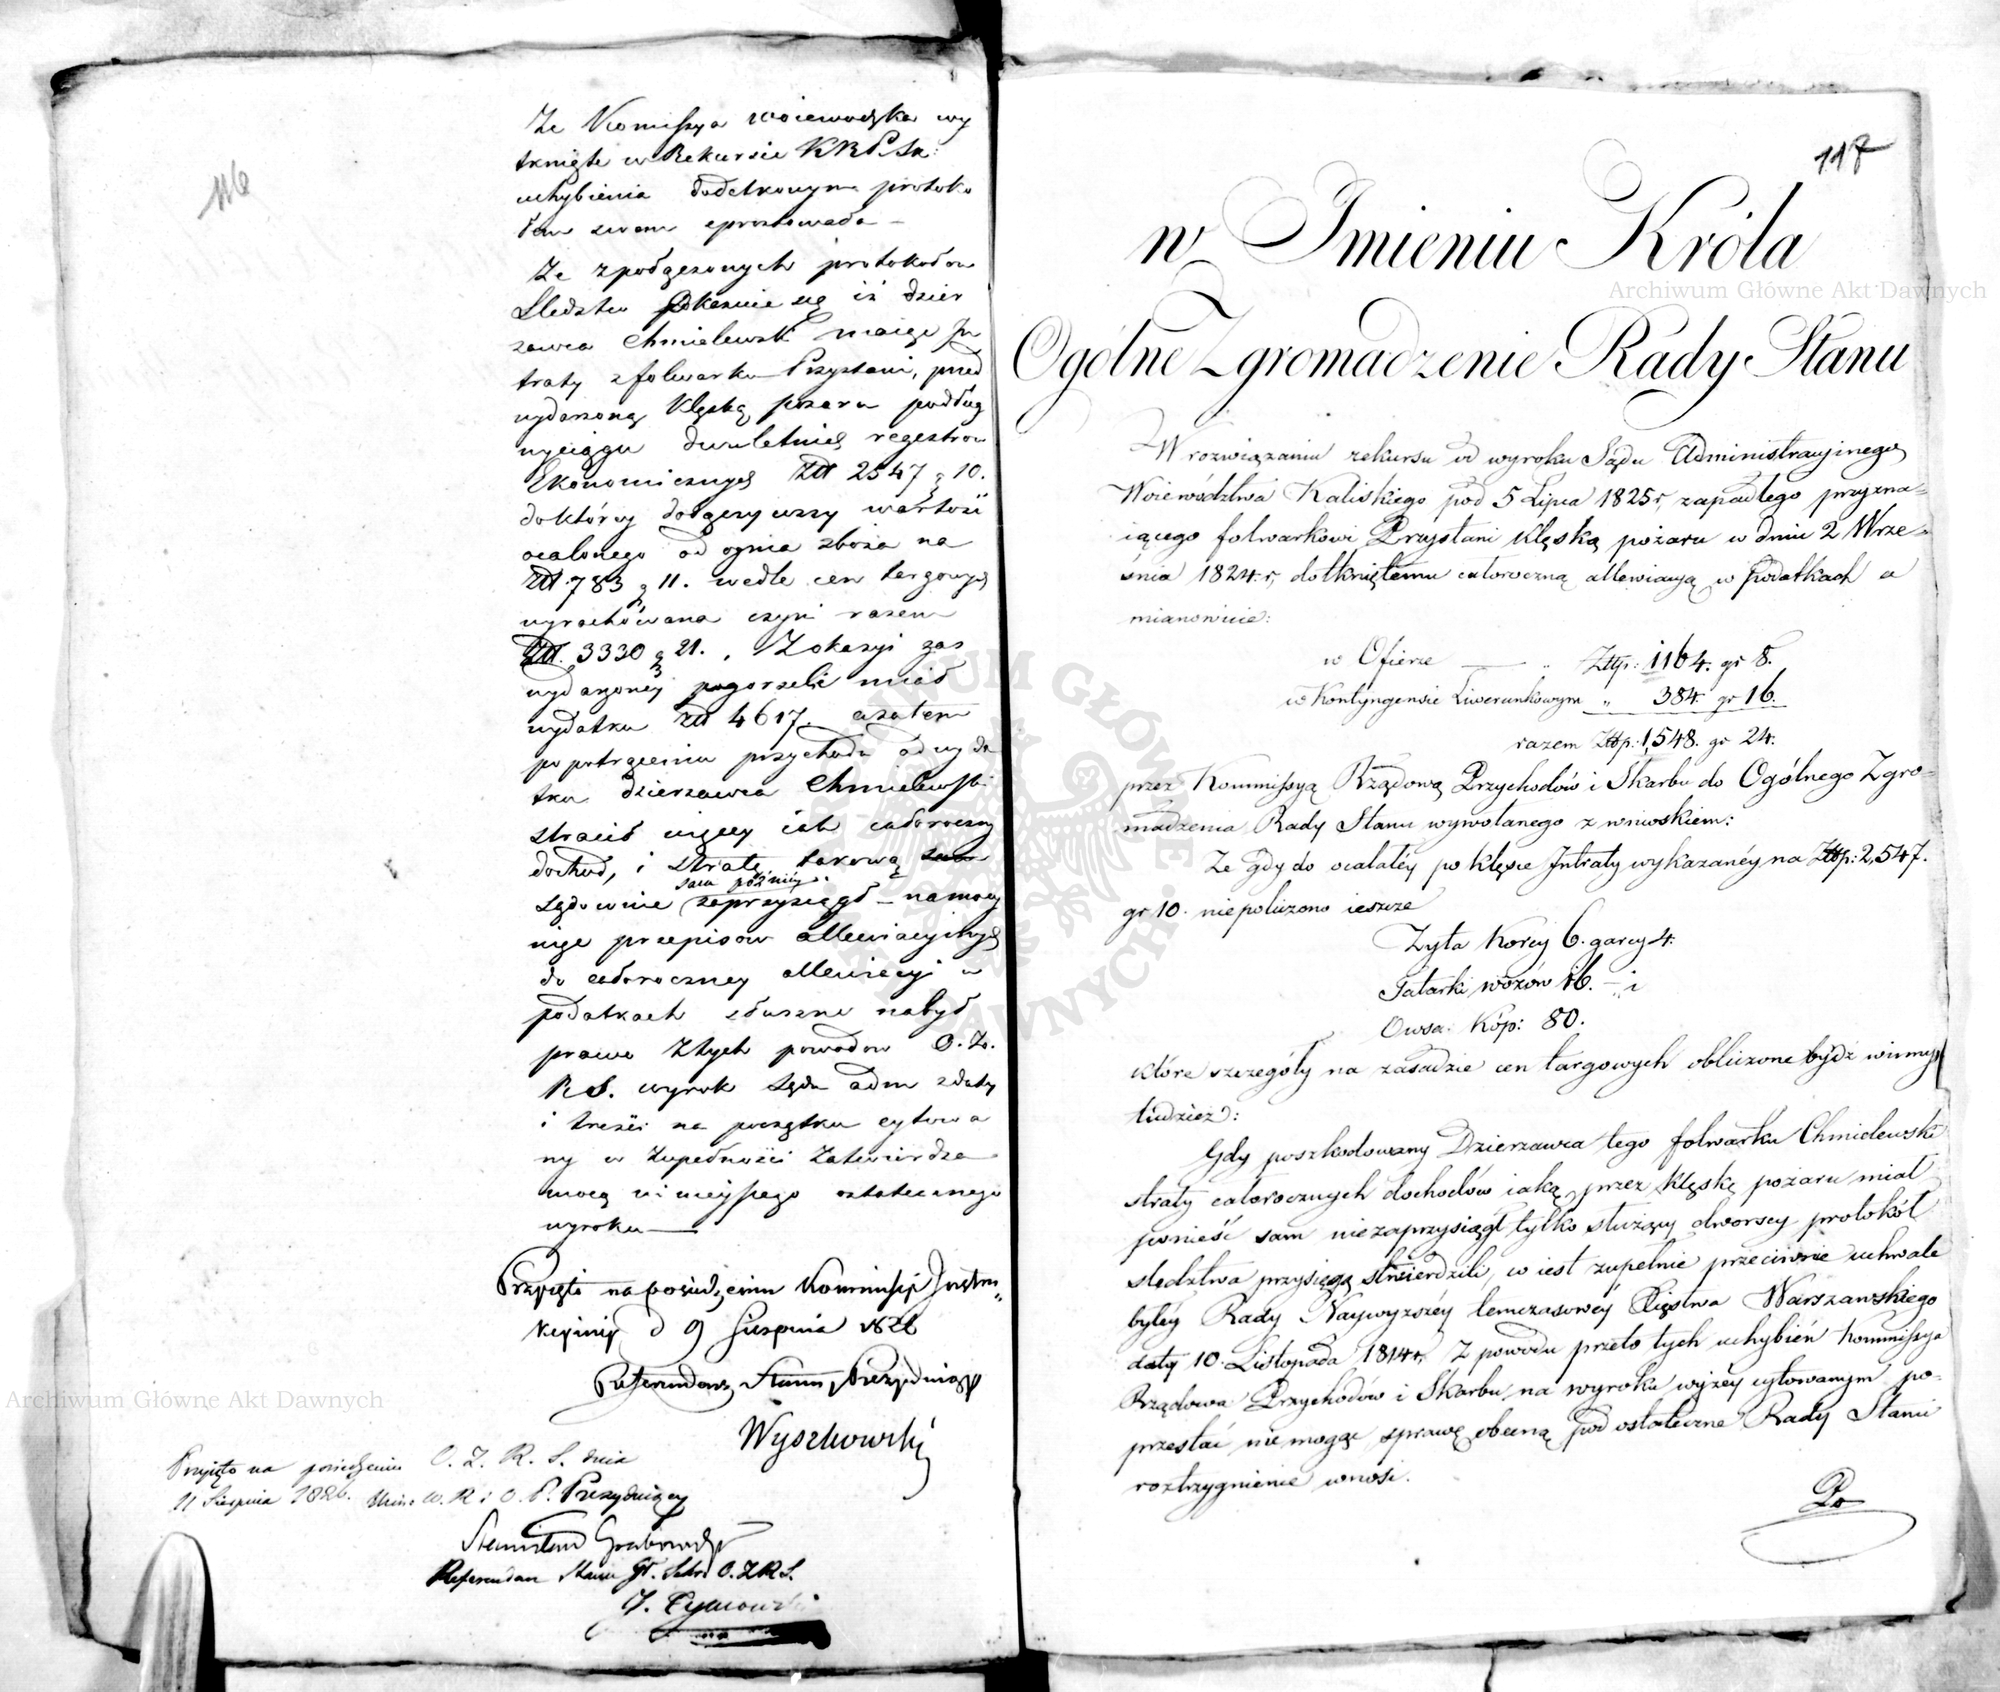 116
Ze Komissya woiewodzka wy
tknięte w Rekursie KRP.Sk:
uchybienia dodatkowym protoko
łem swem sprostowała –
Ze z połączonych protokołow
Sledztw pokazuie się iż dzier
zawca Chmielewski maiąc In
traty z folwarku Przystani, przed
wydarzoną klęską pożaru podług
wyciągu dwuletnieg regestrow
Ekonomicznych Złł 2547 g 10.
do którey dołączywszy wartość
ocalonego od ognia zboża na
Złł 783 g 11. wedle cen targowych
wyrachowana czyni razem
Złł. 3330 g 21. , Z okazyi zas
wydarzoney pogorzeli miał
wydatku Złł 4617. a zatem
po potrąceniu przychodu od wyda
tku dzierzawca Chmielewski
stracił więcey iak całoroczny
dochod, i stratę takową
sam później
sądownie zaprzysiągł – na mocy
więc przepisow allewiacyinych
do całoroczney allewiacyi w
podatkach słuszne nabył
prawo Z tych powodow O. Z.
R S. wyrok Sądu adm z daty
i treści na początku cytowa
ny w zupełności Zatwierdza
mocą ninieyszego ostatecznego
wyroku
Przyięto na posiedzeniu Kommissyi Instru
kcyiney d 9 Sierpnia 1826
Referendarz Stanu Prezyduiący
Wyszkowski
Przyięto na posiedzeniu O. Z. R. S. dnia
11 Sierpnia 1826. Min: W. R i O. P. Prezyduiący
Stanisław Grabowski
Referendarz Stanu Gł. Sekr O. Z R S.
J. Tymowski
117
w Imieniu Króla
Ogólne Zgromadzenie Rady Stanu
W rozwiązaniu rekursu od wyroku Sądu Administracyinego
Woiewództwa Kaliskiego pod 5 Lipca 1825 r, zapadłego przyzna=
iącego folwarkowi Przystani klęską pożaru w dniu 2 Wrze=
śnia 1824 r, dotkniętemu całoroczną allewiacyą w podatkach a
mianowicie:
w Ofierze — „ Złłp: 1164. gr 8.
w Kontyngensie Liwerunkowym „ 384. gr 16.
razem Złłp: 1,548. gr 24.
przez Kommissyą Rządową Przychodów i Skarbu do Ogólnego Zgro=
madzenia Rady Stanu wywołanego z wnioskiem:
Ze gdy do ocalałéy po klęsce Intraty wykazanéy na Złłp: 2,547.
gr 10. niepoliczono ieszcze
Zyta Korcy 6. garcy 4.
Tatarki wozów 16. – „ i
Owsa: Kóp: 80.
które szczegóły na zasadzie cen targowych obliczone bydź winny
tudzież:
Gdy poszkodowany Dzierzawca tego folwarku Chmielewski
straty całorocznych dochodów iaką przez klęskę pożaru miał
ponieść sam niezaprzysiągł tylko służący dworscy protokół
śledztwa przysięgą stwierdzili, co iest zupełnie przeciwnie uchwale
byłéy Rady Naywyższéy temczasowéy Xięstwa Warszawskiego
daty 10. Listopada 1814 r, Z powodu przeto tych uchybień Kommissya
Rządowa Przychodów i Skarbu na wyroku wyżéy cytowanym po=
przestać nie mogąc sprawę obecną pod ostateczne Rady Stanu
roztrzygnienie wnosi.
Po
Archiwum Główne Akt Dawnych
Archiwum Główne Akt Dawnych
ARCHIWUM GŁÓWNE AKT DAWNYCH